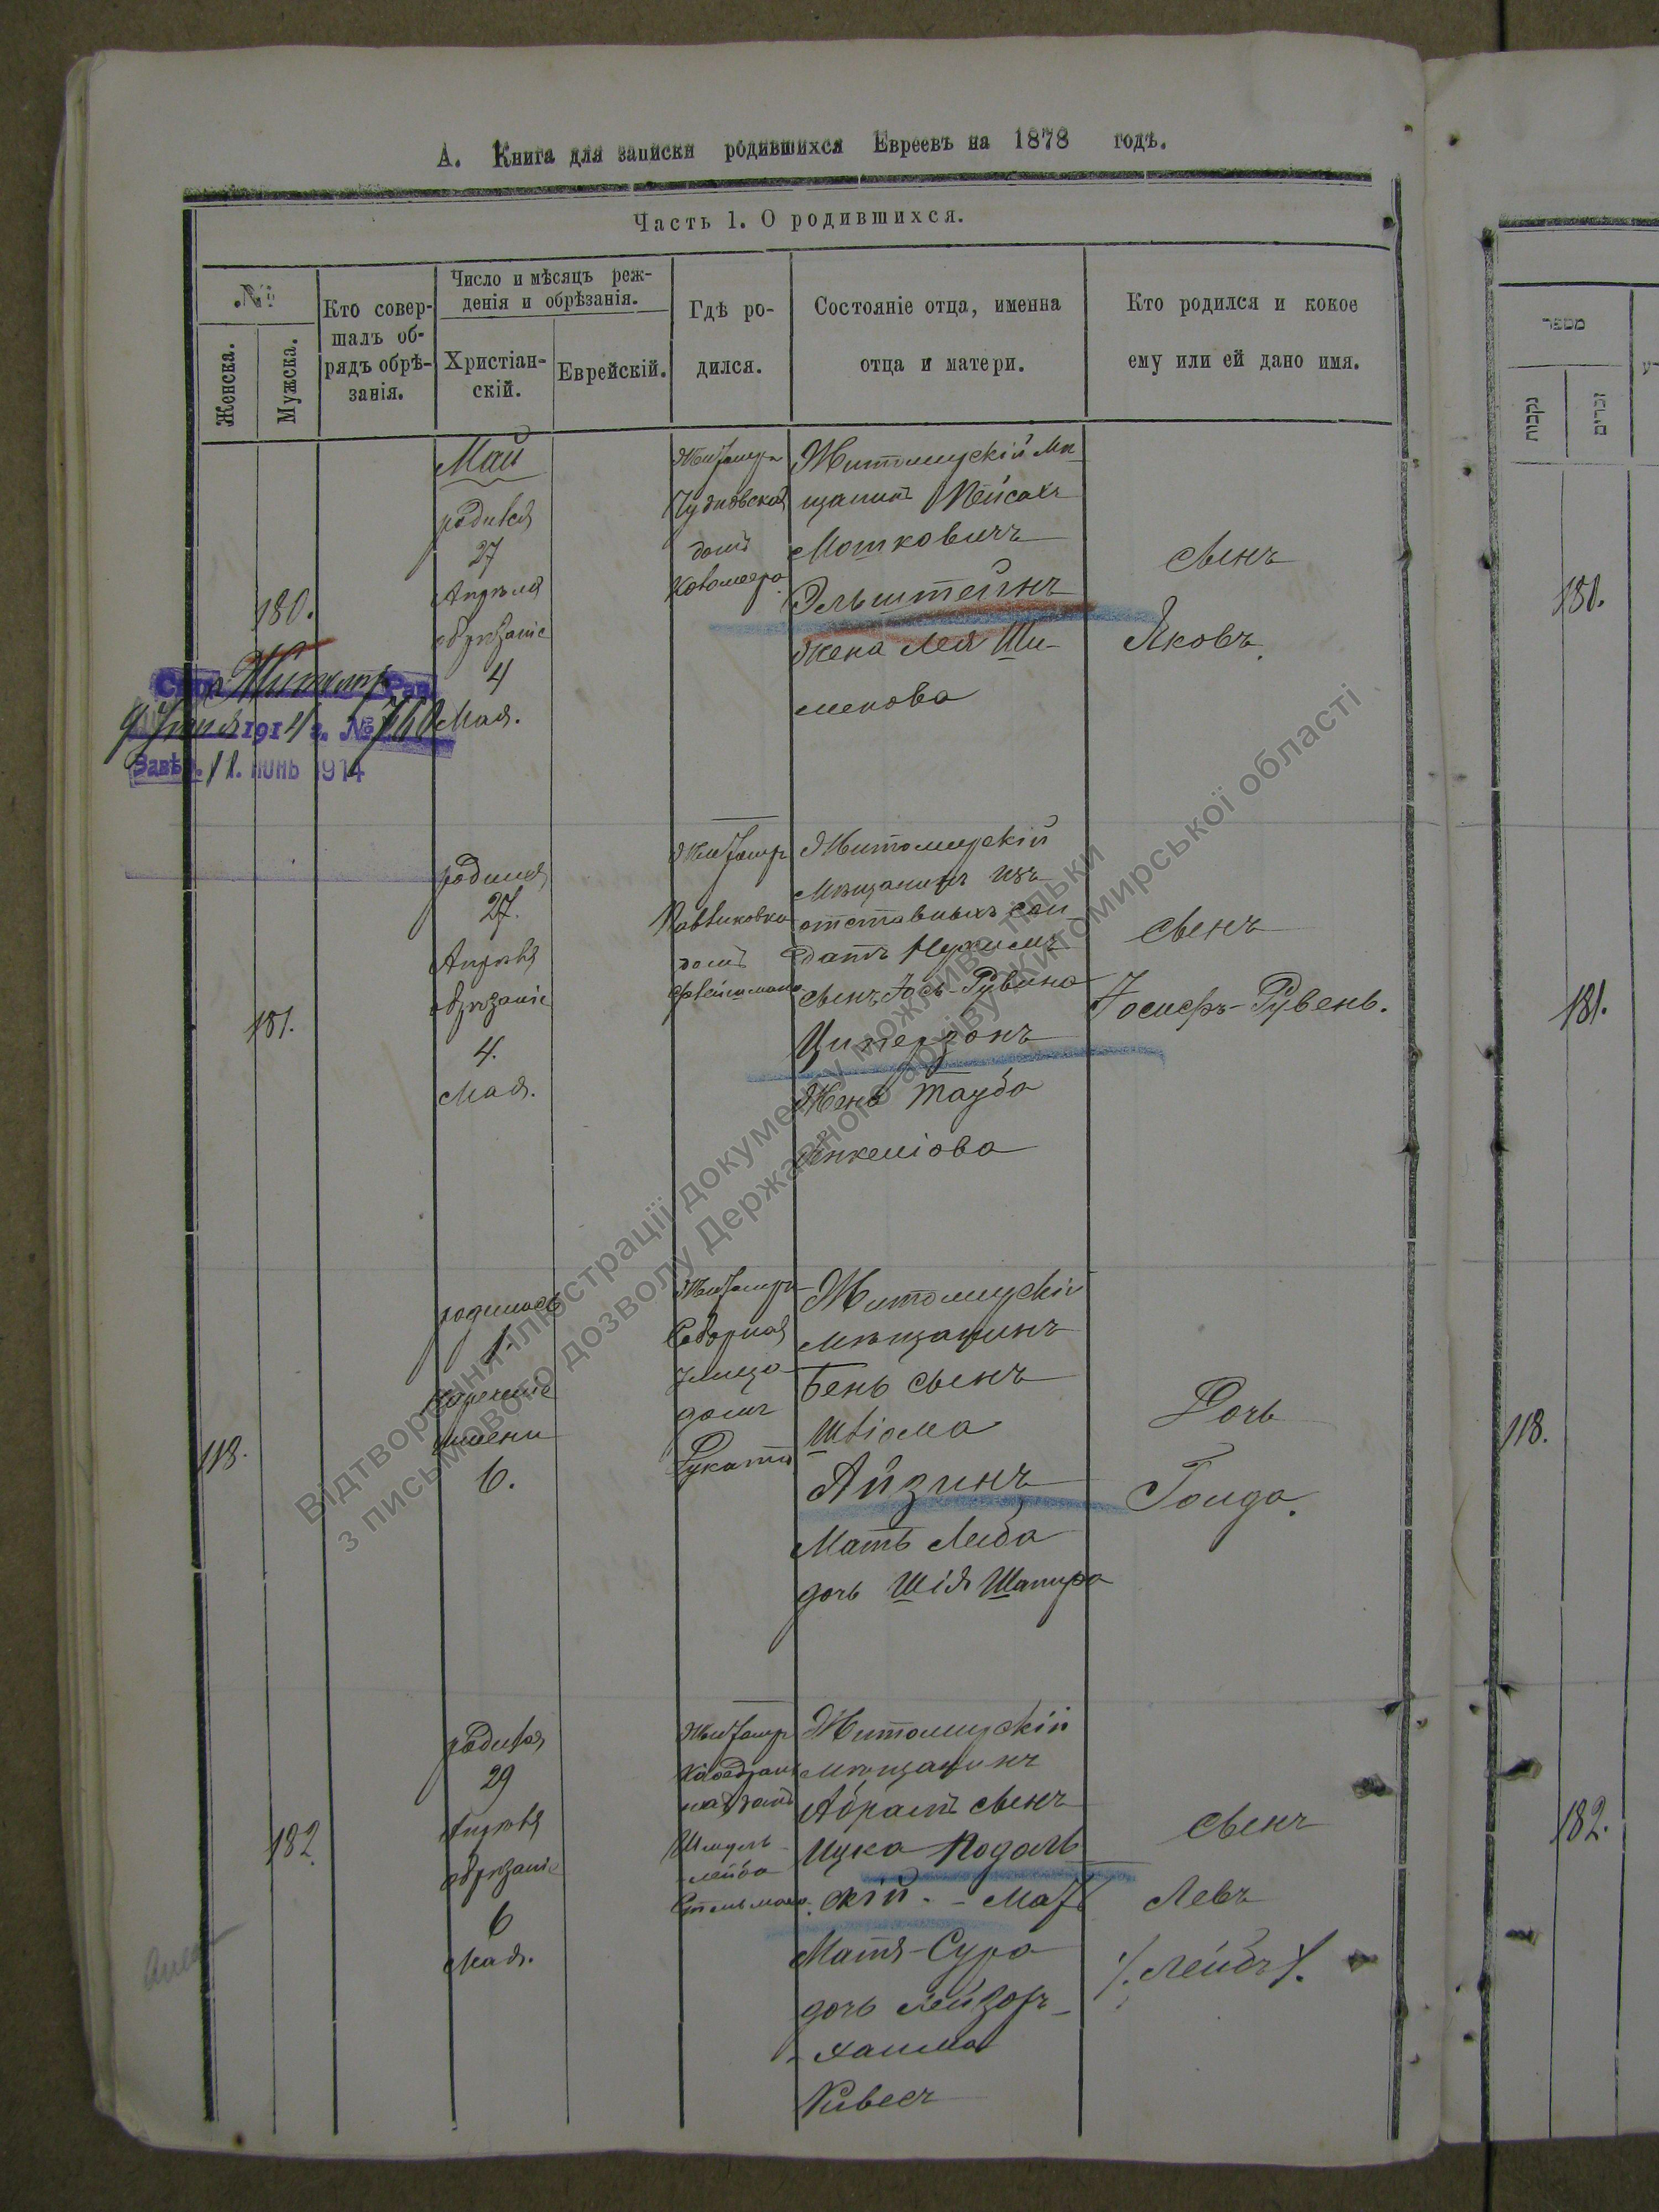 А. Книга для записки родившихся Евреевъ на 1878 годъ.
Часть 1. О родившихся.
№
Женска.
Мужска.
Кто совер-
шалъ об-
рядъ обрѣ-
занія.
Число и мѣсяцъ реж-
денія и обрѣзанія.
Христіан-
скій.
Еврейскій.
Гдѣ ро-
дился.
Состояніе отца, именна
отца и матери.
Кто родился и кокое
ему или ей дано имя.
180.
Май
родился
27
Апрѣля
обрѣзаніе
4
Мая.
Житомиръ
Чудновская
домъ
Житомирскій мѣ-
щанинъ Пейсахъ
Мошковичъ
Эльштейнъ
жена Лея Ши-
менова
сынъ
Яковъ.
Житомр. Рав.
9 1914 г. № 760
Завѣр. 11. июнь 1914
181.
родился
27.
Апрѣля
обрѣзаніе
4.
Мая.
Житомиръ
Павликовка
домъ
Житомирскій
мѣщанинъ изъ
отставныхъ сол
датъ Нухимъ
сынъ Іось-Рувина
Циперзонъ
Жена Тауба
Янкеліова
сынъ
Іосифъ-Рувень.
118.
родилась
1.
нареченіе
имени
6.
Житомиръ
Соборная
улица
домъ
Житомирскій
мѣщанинъ
Бень сынъ
Шліома
Айзинъ
Мать Либа
дочь Шія Шапиро
Дочь
Голда.
182.
родился
29
Апрѣля
обрѣзаніе
6
Мая.
Житомиръ
Шмуль
-лейба
Житомирскій
мѣщанинъ
Абрамъ сынъ
Ицка Подоль
скій. - Мать
Матя-Сура
дочь Лейзоръ-
-Хаима
Кивесъ
сынъ
Левъ
/. Лейбъ /.
מספר
נקבות
זכרים
180.
181.
118.
182.
Відтворення ілюстрації документу можливе тільки
з письмового дозволу Державного архіву Житомирської області